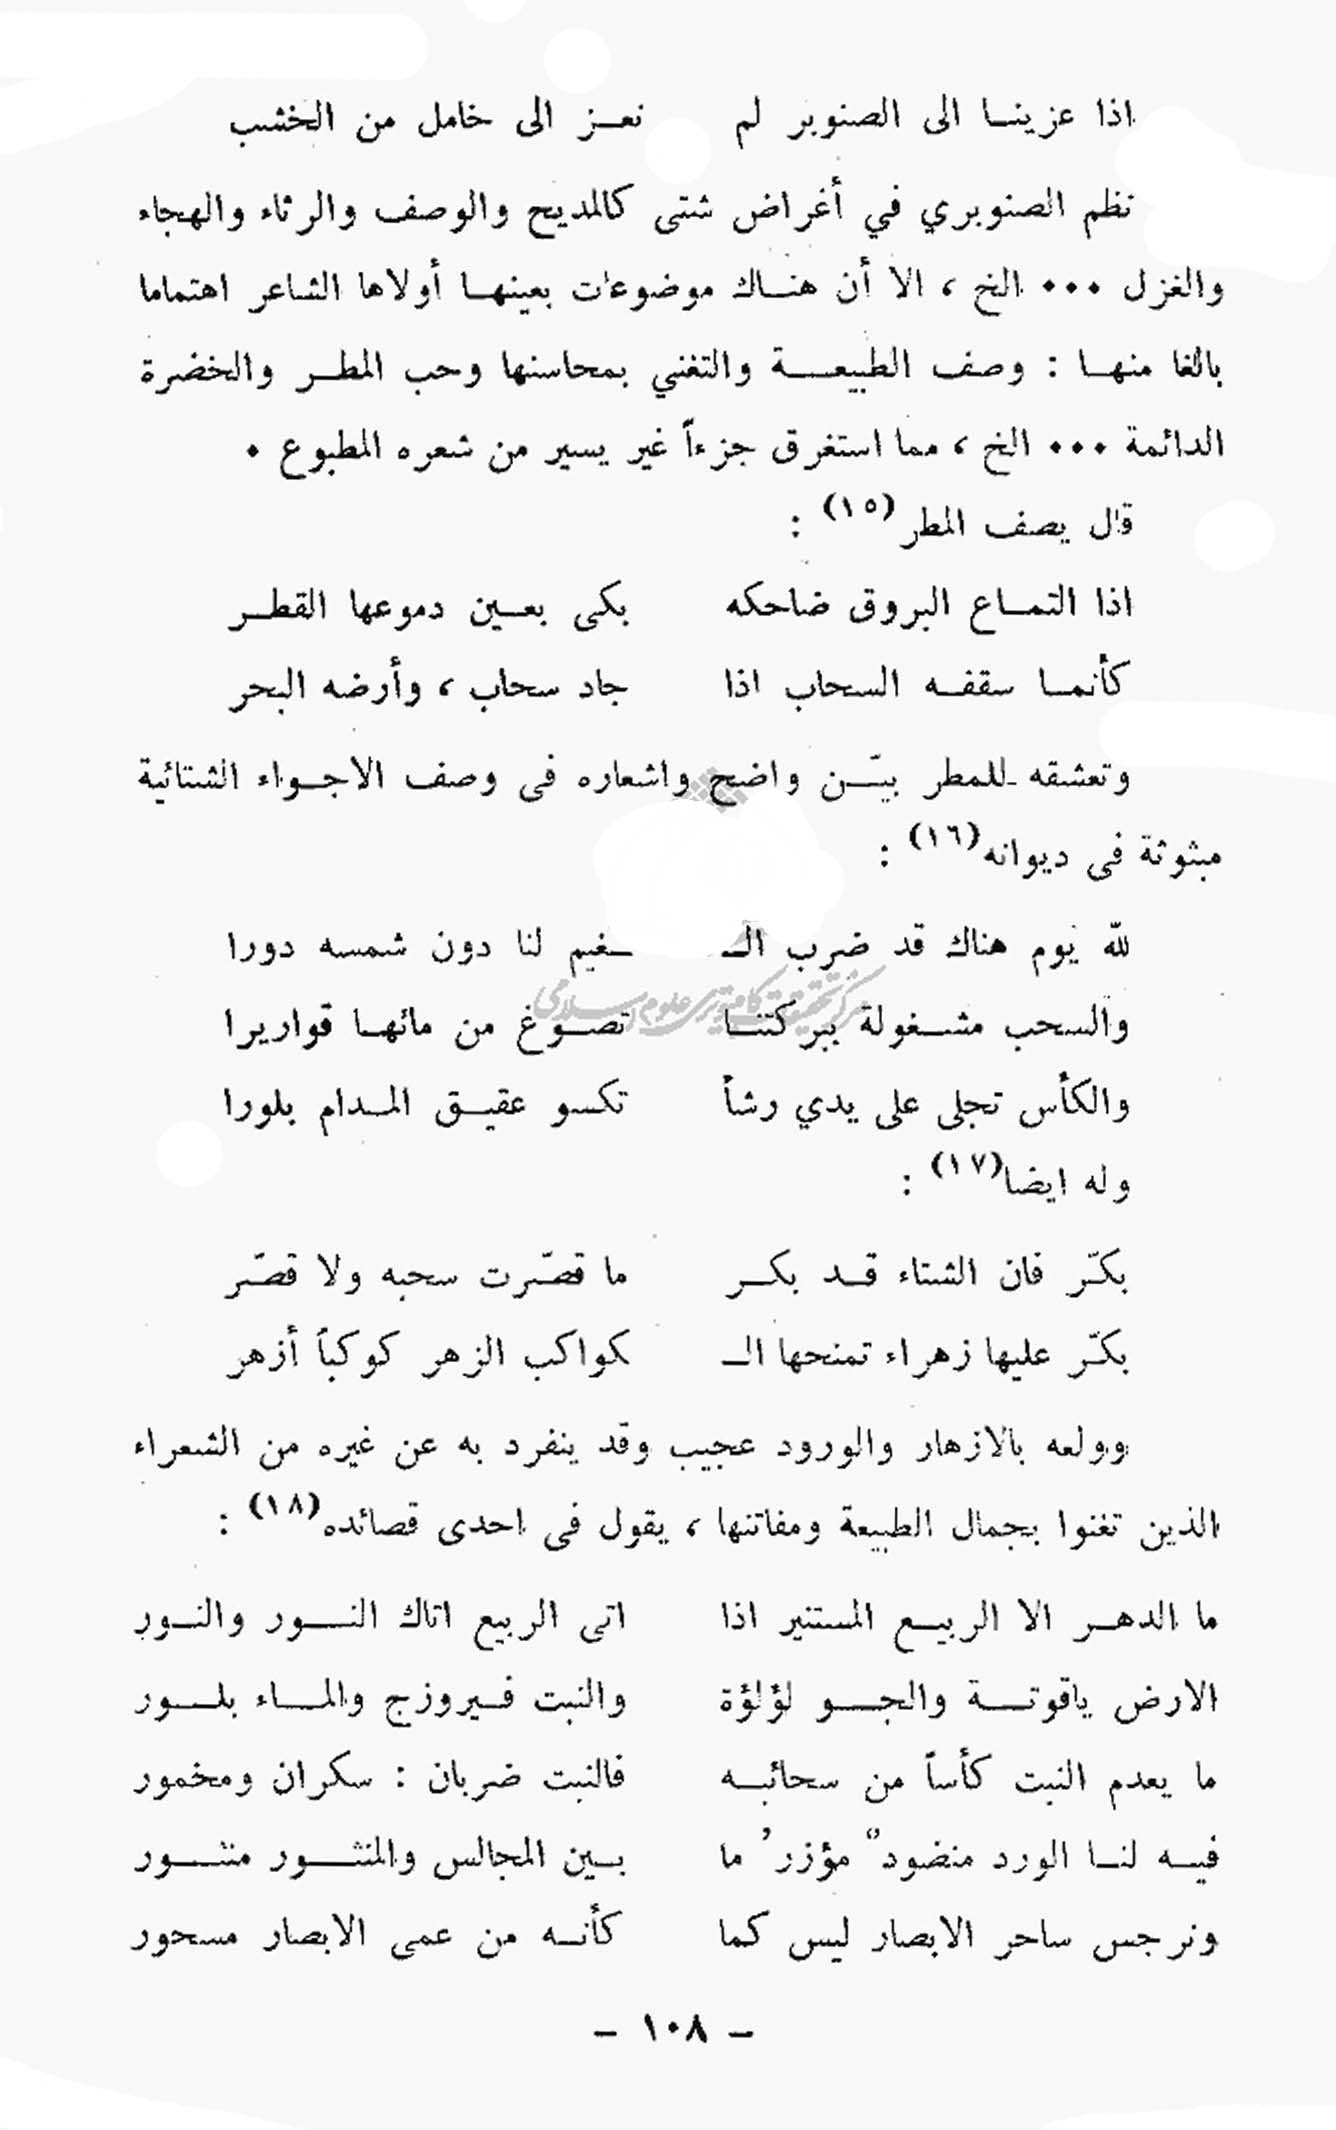 اذا عزينا الى الصنوبر لم نعز الى خامل من الخشب
نظم الصنوبري في أغراض شتى كالمديح والوصف والرثاء والهجاء
والغزل ٠٠٠ الخ ، الا أن هناك موضوعات بعينها أولاها الشاعر اهتماما
بالغا منها : وصف الطبيعة والتغني بمحاسنها وحب المطر والخضرة
الدائمة ٠٠٠ الخ ، مما استغرق جزءاً غير يسير من شعره المطبوع ٠
قال يصف المطر (١٥) :
اذا التماع البروق ضاحكه بكى بعين دموعها القطر
كأنما سقفه السحاب اذا جاد سحاب ، وأرضه البحر
وتعشقه للمطر بيّن واضح واشعاره فى وصف الاجواء الشتائية
مبثوثة فى ديوانه (١٦) :
لله يوم هناك قد ضرب الـ ـغيم لنا دون شمسه دورا
مركز تحقيقات كامپيوتری علوم اسلامی
والسحب مشغولة ببركتنا تصوغ من مائها قواريرا
والكأس تجلى على يدي رشأ تكسو عقيق المدام بلورا
وله ايضا (١٧) :
بكّر فان الشتاء قد بكر ما قصّرت سحبه ولا قصّر
بكّر عليها زهراء تمنحها الـ كواكب الزهر كوكباً أزهر
وولعه بالازهار والورود عجيب وقد ينفرد به عن غيره من الشعراء
الذين تغنوا بجمال الطبيعة ومفاتنها ، يقول فى احدى قصائده (١٨) :
ما الدهر الا الربيع المستنير اذا اتى الربيع اتاك النور والنور
الارض ياقوتة والجو لؤلؤة والنبت فيروزج والماء بلور
ما يعدم النبت كأساً من سحائبه فالنبت ضربان : سكران ومخمور
فيه لنا الورد منضودٌ مؤزرُ ما بين المجالس والمنثور منثور
ونرجس ساحر الابصار ليس كما كأنه من عمى الابصار مسحور
– ١٠٨ –